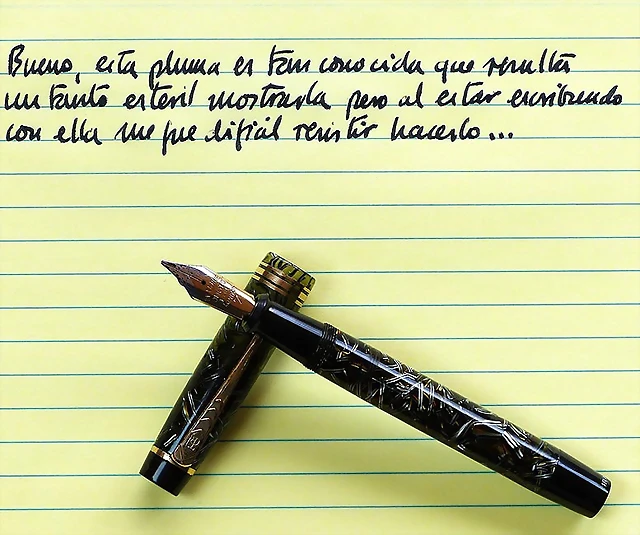 Bueno, esta pluma es tan conocida que resulta
un tanto estéril mostrarla pero al estar escribiendo
con ella me fue difícil resistir hacerlo...